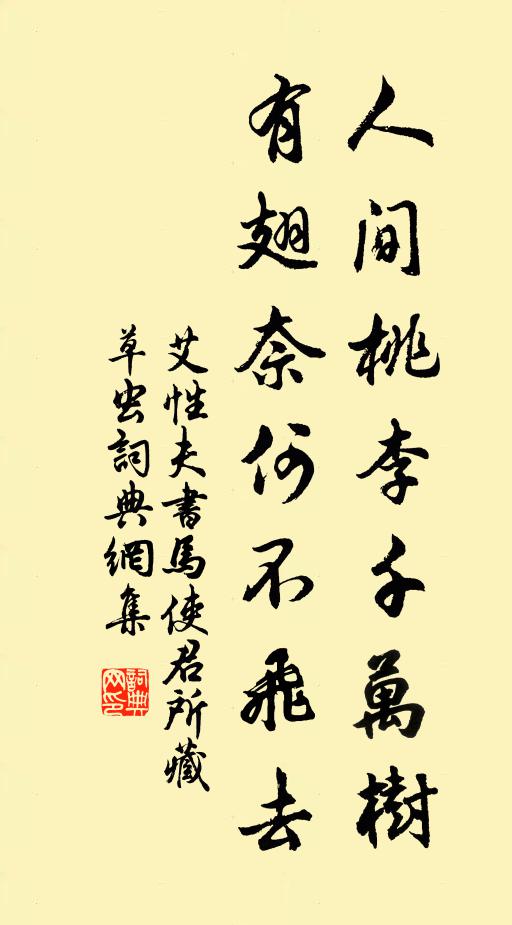 人间桃李千萬樹
有翅奈何不飛去
艾性夫書馬使君所藏
草虫詞典網集
詞典网印